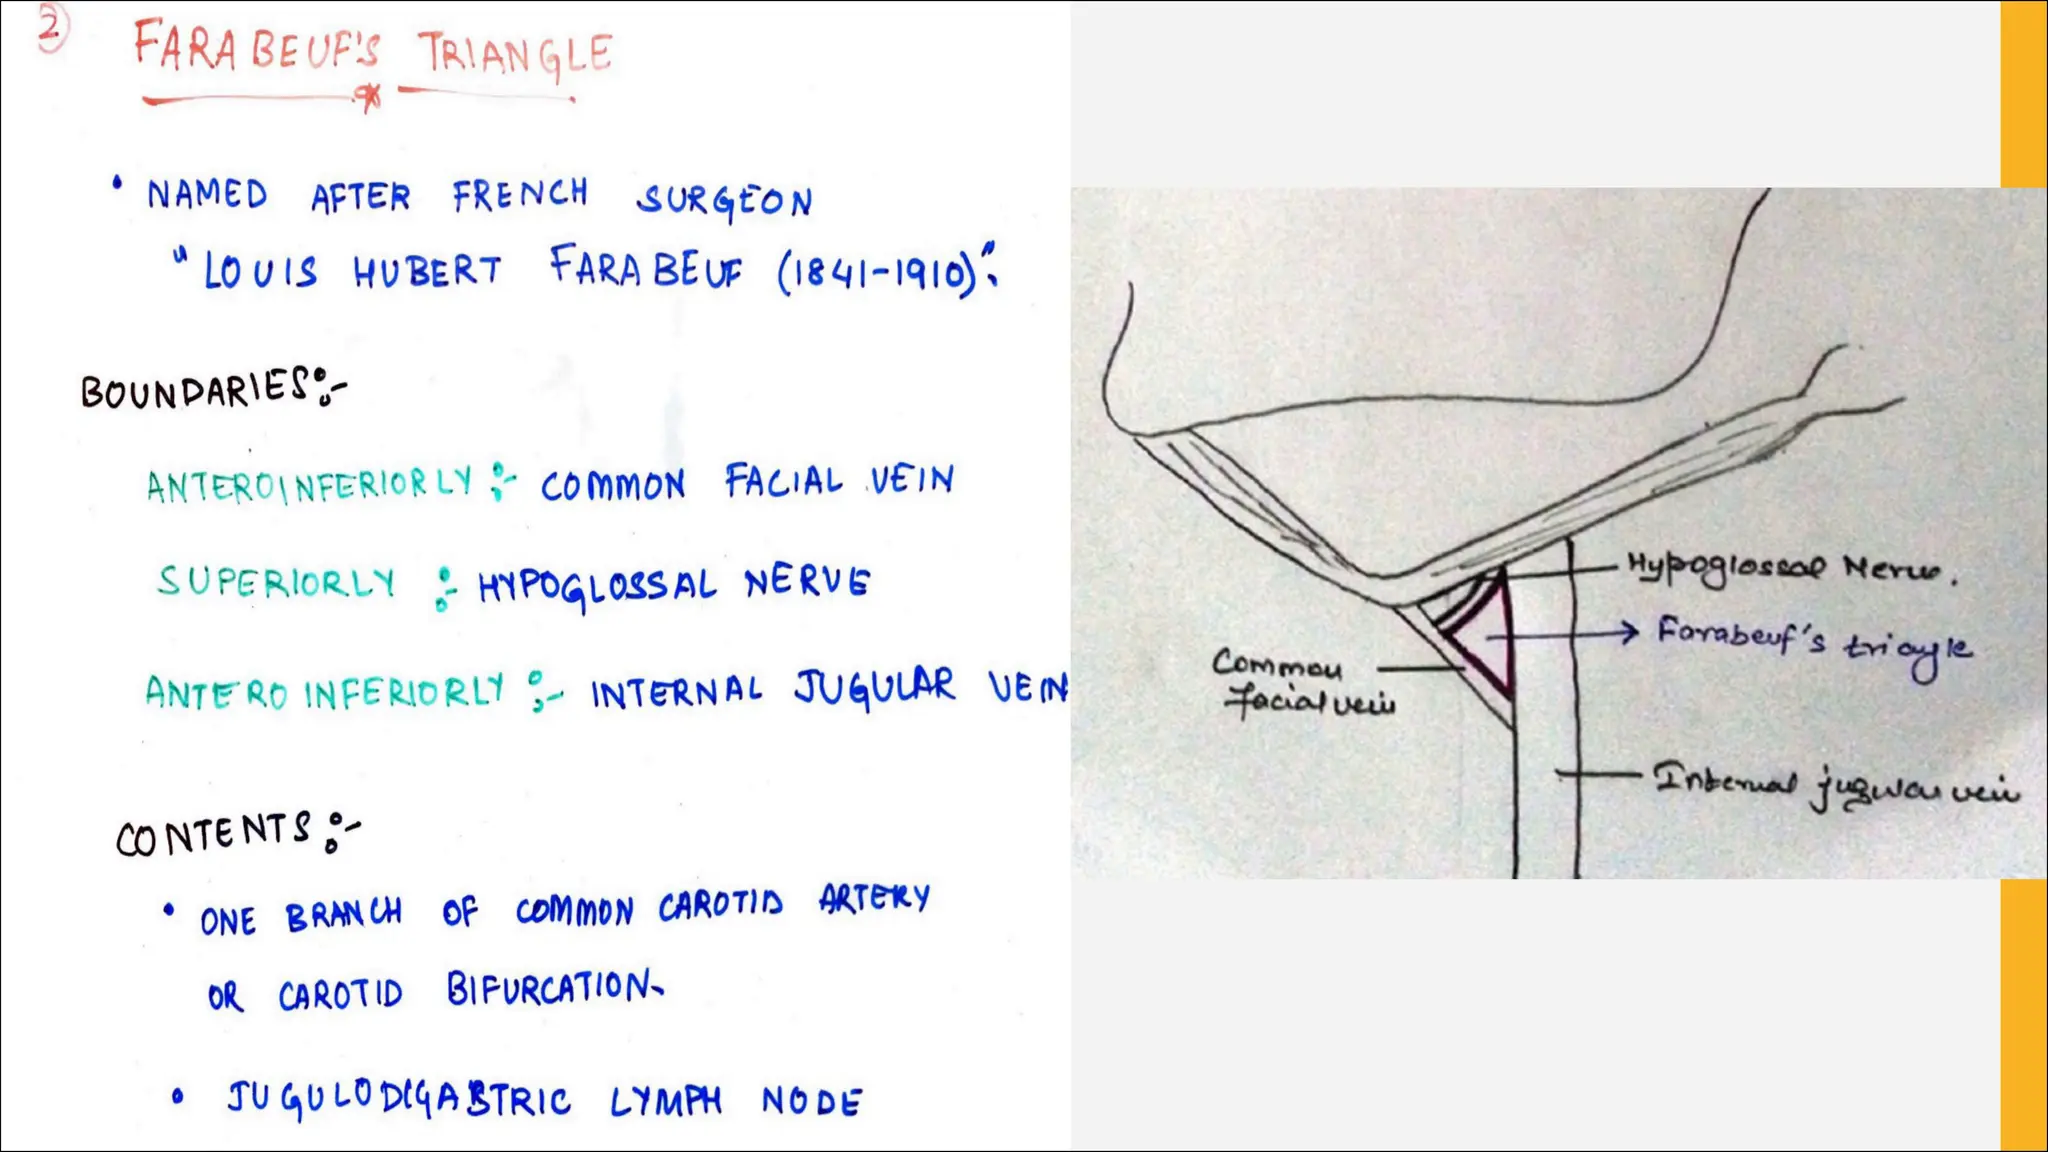 2
FARABEUF'S TRIANGLE
• NAMED AFTER FRENCH SURGEON
"LOUIS HUBERT FARABEUF (1841-1910)".
BOUNDARIES:-
ANTEROINFERIORLY :- COMMON FACIAL VEIN
SUPERIORLY :- HYPOGLOSSAL NERVE
ANTERO INFERIORLY :- INTERNAL JUGULAR VEIN
CONTENTS:-
• ONE BRANCH OF COMMON CAROTID ARTERY
OR CAROTID BIFURCATION.
• JUGULODIGASTRIC LYMPH NODE
Hypoglossal Nerve.
Farabeuf's triangle
Common
facial vein
Internal jugular vein